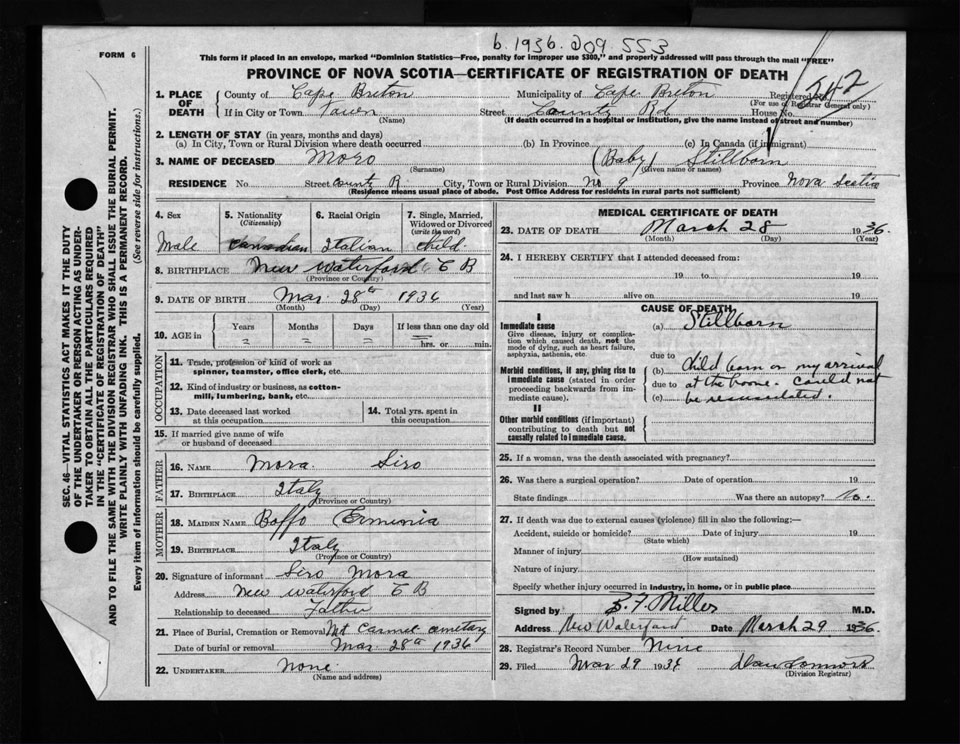 b. 1936. 209. 553
FORM 6
This form if placed in an envelope, marked "Dominion Statistics—Free, penalty for improper use $300," and properly addressed will pass through the mail "FREE"
PROVINCE OF NOVA SCOTIA—CERTIFICATE OF REGISTRATION OF DEATH
1. PLACE OF DEATH County of Cape Breton Municipality of Cape Breton Registered No. 542
(For use of Registrar General only)
If in City or Town Town Street County Rd House No.
(Name) (If death occurred in a hospital or institution, give the name instead of street and number)
2. LENGTH OF STAY (in years, months and days)
(a) In City, Town or Rural Division where death occurred (b) In Province (c) In Canada (if immigrant)
3. NAME OF DECEASED Moro (Baby) Stillborn
(Surname) (Given name or names)
RESIDENCE No. Street County R. City, Town or Rural Division No 9 Province Nova Scotia
(Residence means usual place of abode. Post Office Address for residents in rural parts not sufficient)
4. Sex Male
5. Nationality (Citizenship) Canadian
6. Racial Origin Italian
7. Single, Married, Widowed or Divorced (write the word) child
8. BIRTHPLACE New Waterford C B
(Province or Country)
9. DATE OF BIRTH Mar 28th 1936
(Month) (Day) (Year)
10. AGE in Years Months Days If less than one day old
hrs. or min.
OCCUPATION
11. Trade, profession or kind of work as spinner, teamster, office clerk, etc.
12. Kind of industry or business, as cotton-mill, lumbering, bank, etc.
13. Date deceased last worked at this occupation
14. Total yrs. spent in this occupation
15. If married give name of wife or husband of deceased
FATHER
16. NAME Mora Siro
17. BIRTHPLACE Italy
(Province or Country)
MOTHER
18. MAIDEN NAME Boffo Erminia
19. BIRTHPLACE Italy
(Province or Country)
20. Signature of informant Siro Mora
Address New Waterford C B
Relationship to deceased Father
21. Place of Burial, Cremation or Removal Mt Carmel cemetary
Date of burial or removal Mar 28th 1936
22. UNDERTAKER None.
(Name and address)
MEDICAL CERTIFICATE OF DEATH
23. DATE OF DEATH March 28 1936.
(Month) (Day) (Year)
24. I HEREBY CERTIFY that I attended deceased from:
19 to 19
and last saw h alive on 19
CAUSE OF DEATH
I
Immediate cause
Give disease, injury or complication which caused death, not the mode of dying, such as heart failure, asphyxia, asthenia, etc.
(a) Stillborn
due to
Morbid conditions, if any, giving rise to immediate cause (stated in order proceeding backwards from immediate cause).
(b) Child born on my arrival
due to at the home. Could not
(c) be resuscitated.
II
Other morbid conditions (if important) contributing to death but not causally related to immediate cause.
25. If a woman, was the death associated with pregnancy?
26. Was there a surgical operation? Date of operation 19
State findings Was there an autopsy? No.
27. If death was due to external causes (violence) fill in also the following:—
Accident, suicide or homicide? Date of injury 19
(State which)
Manner of injury
(How sustained)
Nature of injury
Specify whether injury occurred in industry, in home, or in public place
Signed by B. F. Miller M.D.
Address New Waterford Date March 29 1936.
28. Registrar's Record Number Nine
29. Filed Mar 29 1936 Dan Connors
(Division Registrar)
SEC. 46—VITAL STATISTICS ACT MAKES IT THE DUTY
OF THE UNDERTAKER OR PERSON ACTING AS UNDER-
TAKER TO OBTAIN ALL THE PARTICULARS REQUIRED
IN THE "CERTIFICATE OF REGISTRATION OF DEATH"
AND TO FILE THE SAME WITH THE DIVISION REGISTRAR WHO SHALL ISSUE THE BURIAL PERMIT.
WRITE PLAINLY WITH UNFADING INK. THIS IS A PERMANENT RECORD.
Every item of information should be carefully supplied. (See reverse side for instructions.)